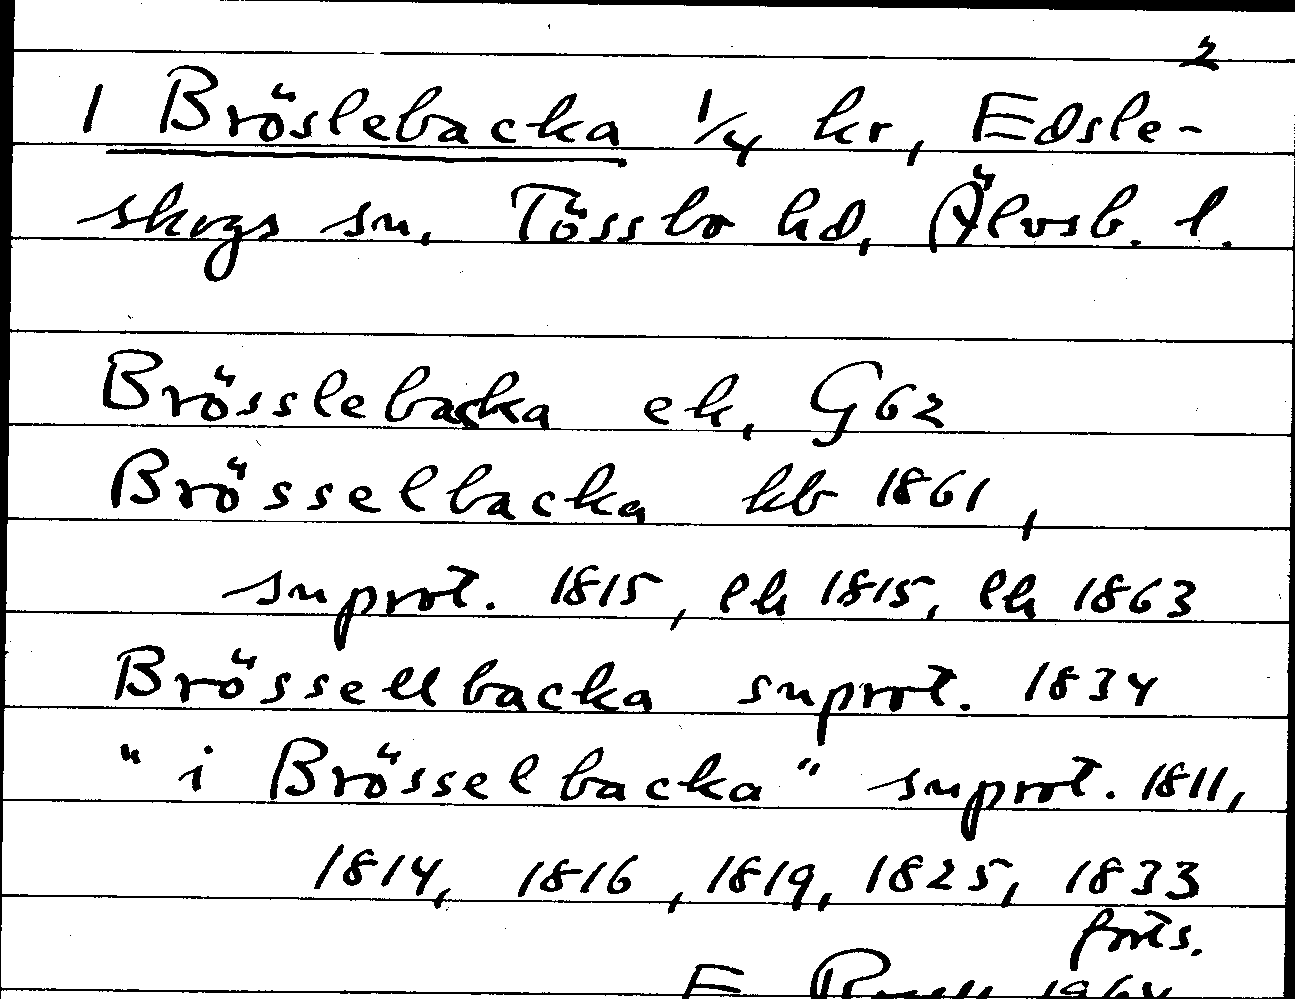 2
1 Bröslebacka 1/4 kr, Edsle-
skogs sn, Tössbo hd, Älvsb. l.
Brösslebacka ek, G62
Brösselbacka kb 1861,
snprot. 1815, lh 1815, lh 1863
Brössellbacka snprot. 1834
"i Brösselbacka" snprot. 1811,
1814, 1816, 1819, 1825, 1833
forts.
E 1964